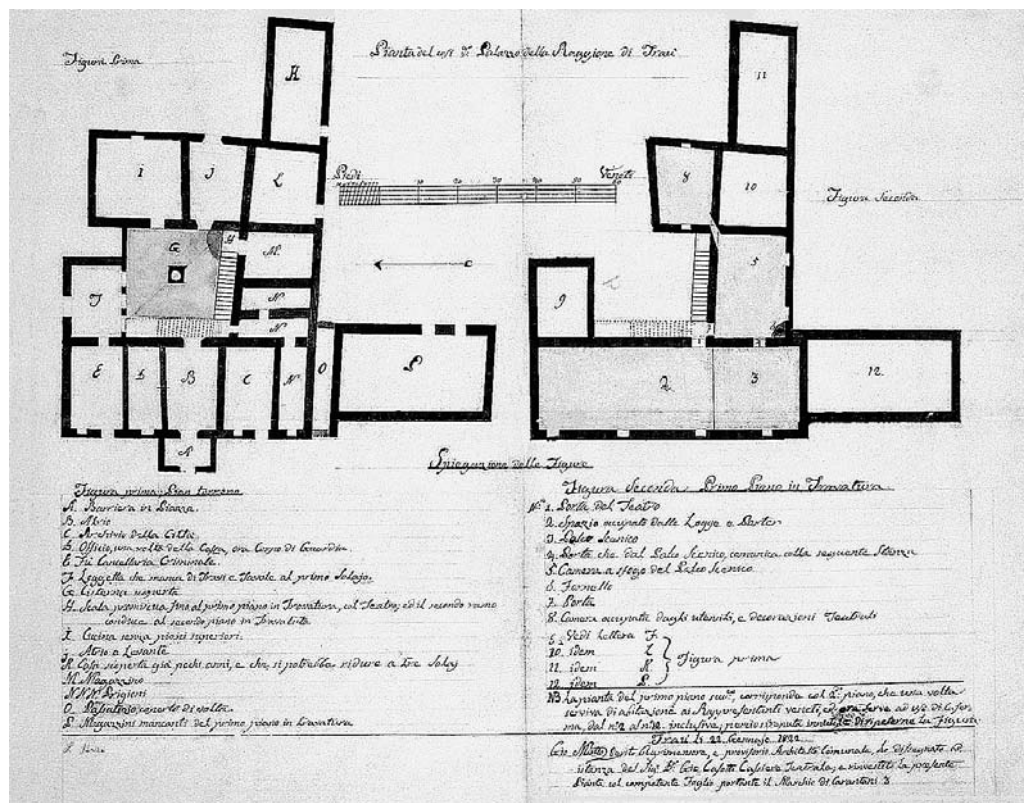 Figura Prima
Pianta del così dº Palazzo della Raggione di Traù
Piedi
Veneti
10 20 30 40 50 60
Figura Seconda
H
I
J
L
G
H
M
N
N
F
E
D
B
C
N
O
P
A
11
8
10
5
9
2
3
12
Spiegazione delle Figure
Figura prima, Pian terreno
A. Barriera in Piazza.
B. Atrio
C. Archivio della Città.
D. Officio, una volta della Cassa, ora Corpo di Guardia.
E. Fù Cancellaria Criminale.
F. Loggetta che manca di Travi e Tavole al primo Solajo.
G. Cisterna scoperta
H. Scala promiscua fino al primo piano in Travatura, col Teatro; ed il secondo ramo
conduce al secondo piano in Travatura
I. Cucina senza piani superiori.
J. Atrio a Levante
K. Casa scoperta già pochi anni, e che si potrebbe ridure a tre Solaj
M. Magazzino
N N Nº Prigioni
O. coperto di volta
P. Magazzini mancanti del primo piano in Travatura
Figura Seconda. Primo Piano in Travatura
Nº 1. Porta del Teatro
2. Spazio occupato dalle Logge e Parter
3. Palco Scenico
4. Porta che dal Palco Scenico, comunica colla seguente Stanza
5. Camera a sfogo del Palco Scenico
6. Fornello
7. Porta
8. Camera occupata dagli utensili, e decorazioni Teatrali
9. Vedi Lettera F.
10. idem L
11. idem K.
12. idem P.
Figura prima
NB La pianta del primo piano corisponde col 2º piano, che una volta
serviva di abitazione ai Rappresentanti veneti, ed ora serve ad uso di Caser-
ma, dal nº 2 al nº 12 inclusive; perciò di ripeterne la Figura
Traù li 22 Gennajo 1822
Gio Agrimensore, e provisorio Architetto Comunale, ho disegnato
istenza del Sigʳ Dʳ Gio Casotti Cassiere Teatrale, e rivestita la presente
Pianta col competente Foglio portante il Marchio di Carantani 3